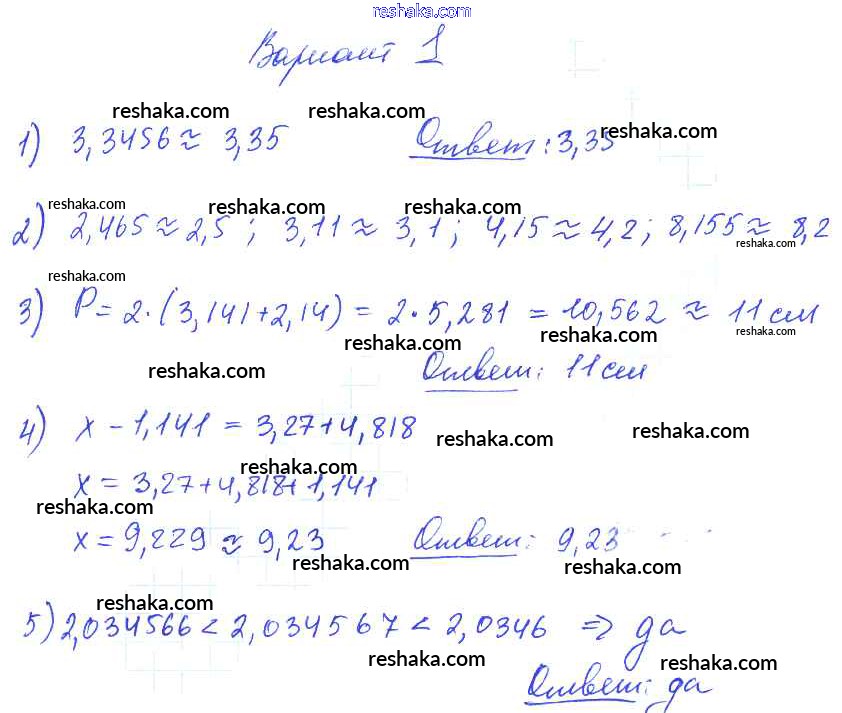 reshaka.com
Вариант 1
reshaka.com reshaka.com
1) 3,3456 ≈ 3,35 Ответ: 3,35 reshaka.com
reshaka.com reshaka.com reshaka.com
2) 2,465 ≈ 2,5 ; 3,11 ≈ 3,1 ; 4,15 ≈ 4,2 ; 8,155 ≈ 8,2
reshaka.com
reshaka.com
3) P = 2·(3,141+2,14) = 2·5,281 = 10,562 ≈ 11 см
reshaka.com reshaka.com reshaka.com
reshaka.com Ответ: 11 см
4) x - 1,141 = 3,27+4,818
reshaka.com reshaka.com
reshaka.com
x = 3,27+4,818+1,141
reshaka.com
x = 9,229 ≈ 9,23 Ответ: 9,23
reshaka.com
reshaka.com
5) 2,034566 < 2,034567 < 2,0346 => да
reshaka.com reshaka.com
Ответ: да